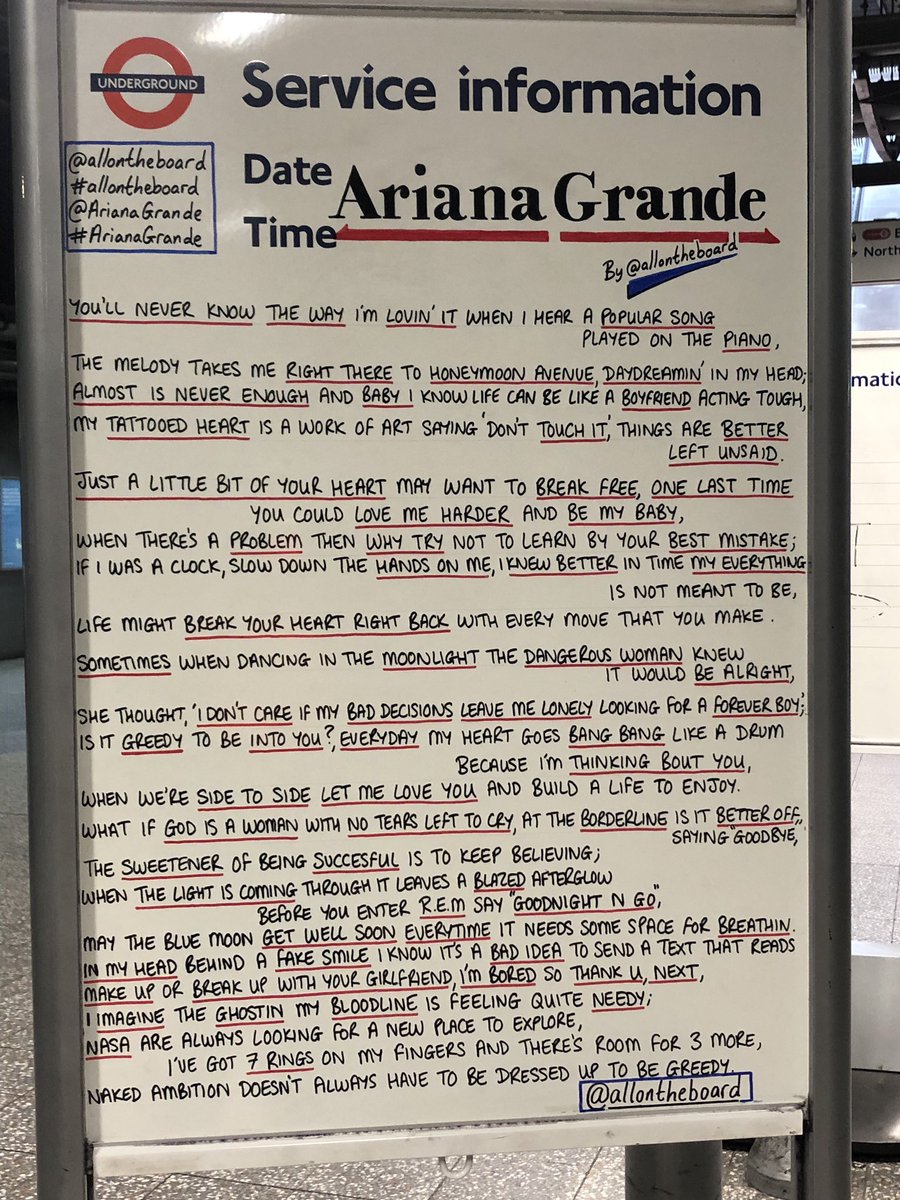 UNDERGROUND
Service information
@allontheboard
#allontheboard
@ArianaGrande
#ArianaGrande
Date
Time
Ariana Grande
By @allontheboard
YOU'LL NEVER KNOW THE WAY I'm LOVIN' IT WHEN I HEAR A POPULAR SONG
PLAYED ON THE PIANO,
THE MELODY TAKES ME RIGHT THERE TO HONEYMOON AVENUE, DAYDREAMIN' IN MY HEAD;
ALMOST IS NEVER ENOUGH AND BABY I KNOW LIFE CAN BE LIKE A BOYFRIEND ACTING TOUGH,
MY TATTOOED HEART IS A WORK OF ART SAYING 'DON'T TOUCH IT', THINGS ARE BETTER
LEFT UNSAID.
JUST A LITTLE BIT OF YOUR HEART MAY WANT TO BREAK FREE, ONE LAST TIME
YOU COULD LOVE ME HARDER AND BE MY BABY,
WHEN THERE'S A PROBLEM THEN WHY TRY NOT TO LEARN BY YOUR BEST MISTAKE;
IF I WAS A CLOCK, SLOW DOWN THE HANDS ON ME, I KNEW BETTER IN TIME MY EVERYTHING
IS NOT MEANT TO BE,
LIFE MIGHT BREAK YOUR HEART RIGHT BACK WITH EVERY MOVE THAT YOU MAKE.
SOMETIMES WHEN DANCING IN THE MOONLIGHT THE DANGEROUS WOMAN KNEW
IT WOULD BE ALRIGHT,
SHE THOUGHT, 'I DON'T CARE IF MY BAD DECISIONS LEAVE ME LONELY LOOKING FOR A FOREVER BOY';
IS IT GREEDY TO BE INTO YOU?, EVERYDAY MY HEART GOES BANG BANG LIKE A DRUM
BECAUSE I'M THINKING BOUT YOU,
WHEN WE'RE SIDE TO SIDE LET ME LOVE YOU AND BUILD A LIFE TO ENJOY.
WHAT IF GOD IS A WOMAN WITH NO TEARS LEFT TO CRY, AT THE BORDERLINE IS IT BETTER OFF,
SAYING "GOODBYE,
THE SWEETENER OF BEING SUCCESFUL IS TO KEEP BELIEVING;
WHEN THE LIGHT IS COMING THROUGH IT LEAVES A BLAZED AFTERGLOW
BEFORE YOU ENTER R.E.M SAY "GOODNIGHT N GO",
MAY THE BLUE MOON GET WELL SOON EVERYTIME IT NEEDS SOME SPACE FOR BREATHIN.
IN MY HEAD BEHIND A FAKE SMILE I KNOW IT'S A BAD IDEA TO SEND A TEXT THAT READS
MAKE UP OR BREAK UP WITH YOUR GIRLFRIEND, I'M BORED SO THANK U, NEXT,
I IMAGINE THE GHOSTIN MY BLOODLINE IS FEELING QUITE NEEDY;
NASA ARE ALWAYS LOOKING FOR A NEW PLACE TO EXPLORE,
I'VE GOT 7 RINGS ON MY FINGERS AND THERE'S ROOM FOR 3 MORE,
NAKED AMBITION DOESN'T ALWAYS HAVE TO BE DRESSED UP TO BE GREEDY.
@allontheboard
North